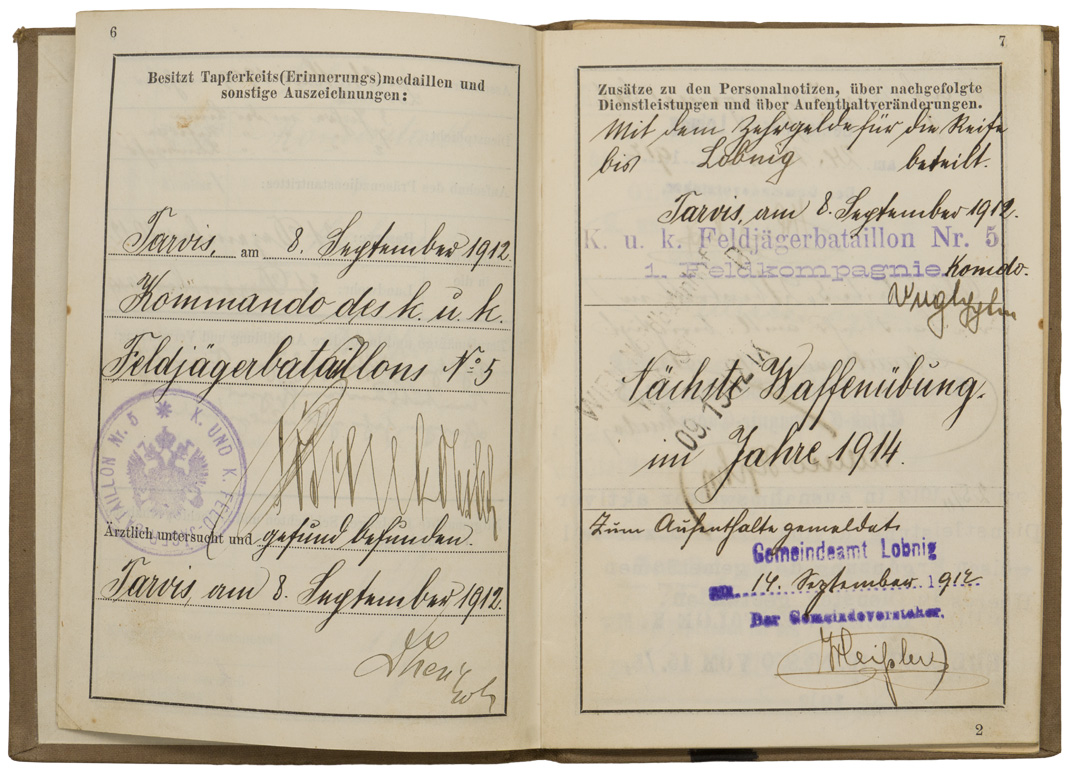 6
Besitzt Tapferkeits(Erinnerungs)medaillen und
sonstige Auszeichnungen:
Tarvis, am 8. September 1912.
Kommando des k. u. k.
Feldjägerbataillons No 5
BATAILLON Nr. 5 * K. UND K. FELD
Ärztlich untersucht und gesund befunden.
Tarvis, am 8. September 1912.
7
Zusätze zu den Personalnotizen, über nachgefolgte
Dienstleistungen und über Aufenthaltveränderungen.
Mit dem Zehrgelde für die Reise
bis Lobnig beteilt.
Tarvis, am 8. September 1912.
K. u. k. Feldjägerbataillon Nr. 5
1. Feldkompagnie Komdo.
Nächste Waffenübung
im Jahre 1914.
Zum Aufenthalte gemeldet.
Gemeindeamt Lobnig
am 14. September 1912.
Der Gemeindevorsteher.
2